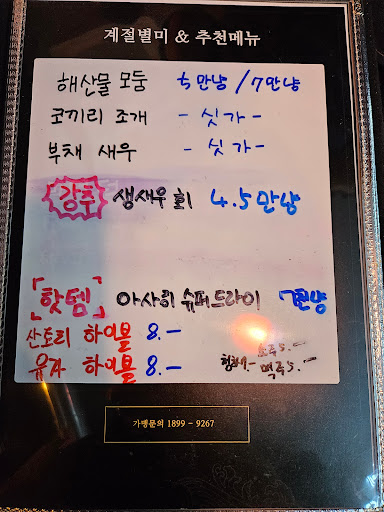 계절별미 & 추천메뉴
해산물 모둠 5만냥 / 7만냥
코끼리 조개 - 싯가 -
부채 새우 - 싯가 -
강추 생새우 회 4.5만냥
[핫템] 아사히 슈퍼드라이 7천냥
산토리 하이볼 8.-
유자 하이볼 8.-
소주 5.-
맥주 5.-
가맹문의 1899 - 9267